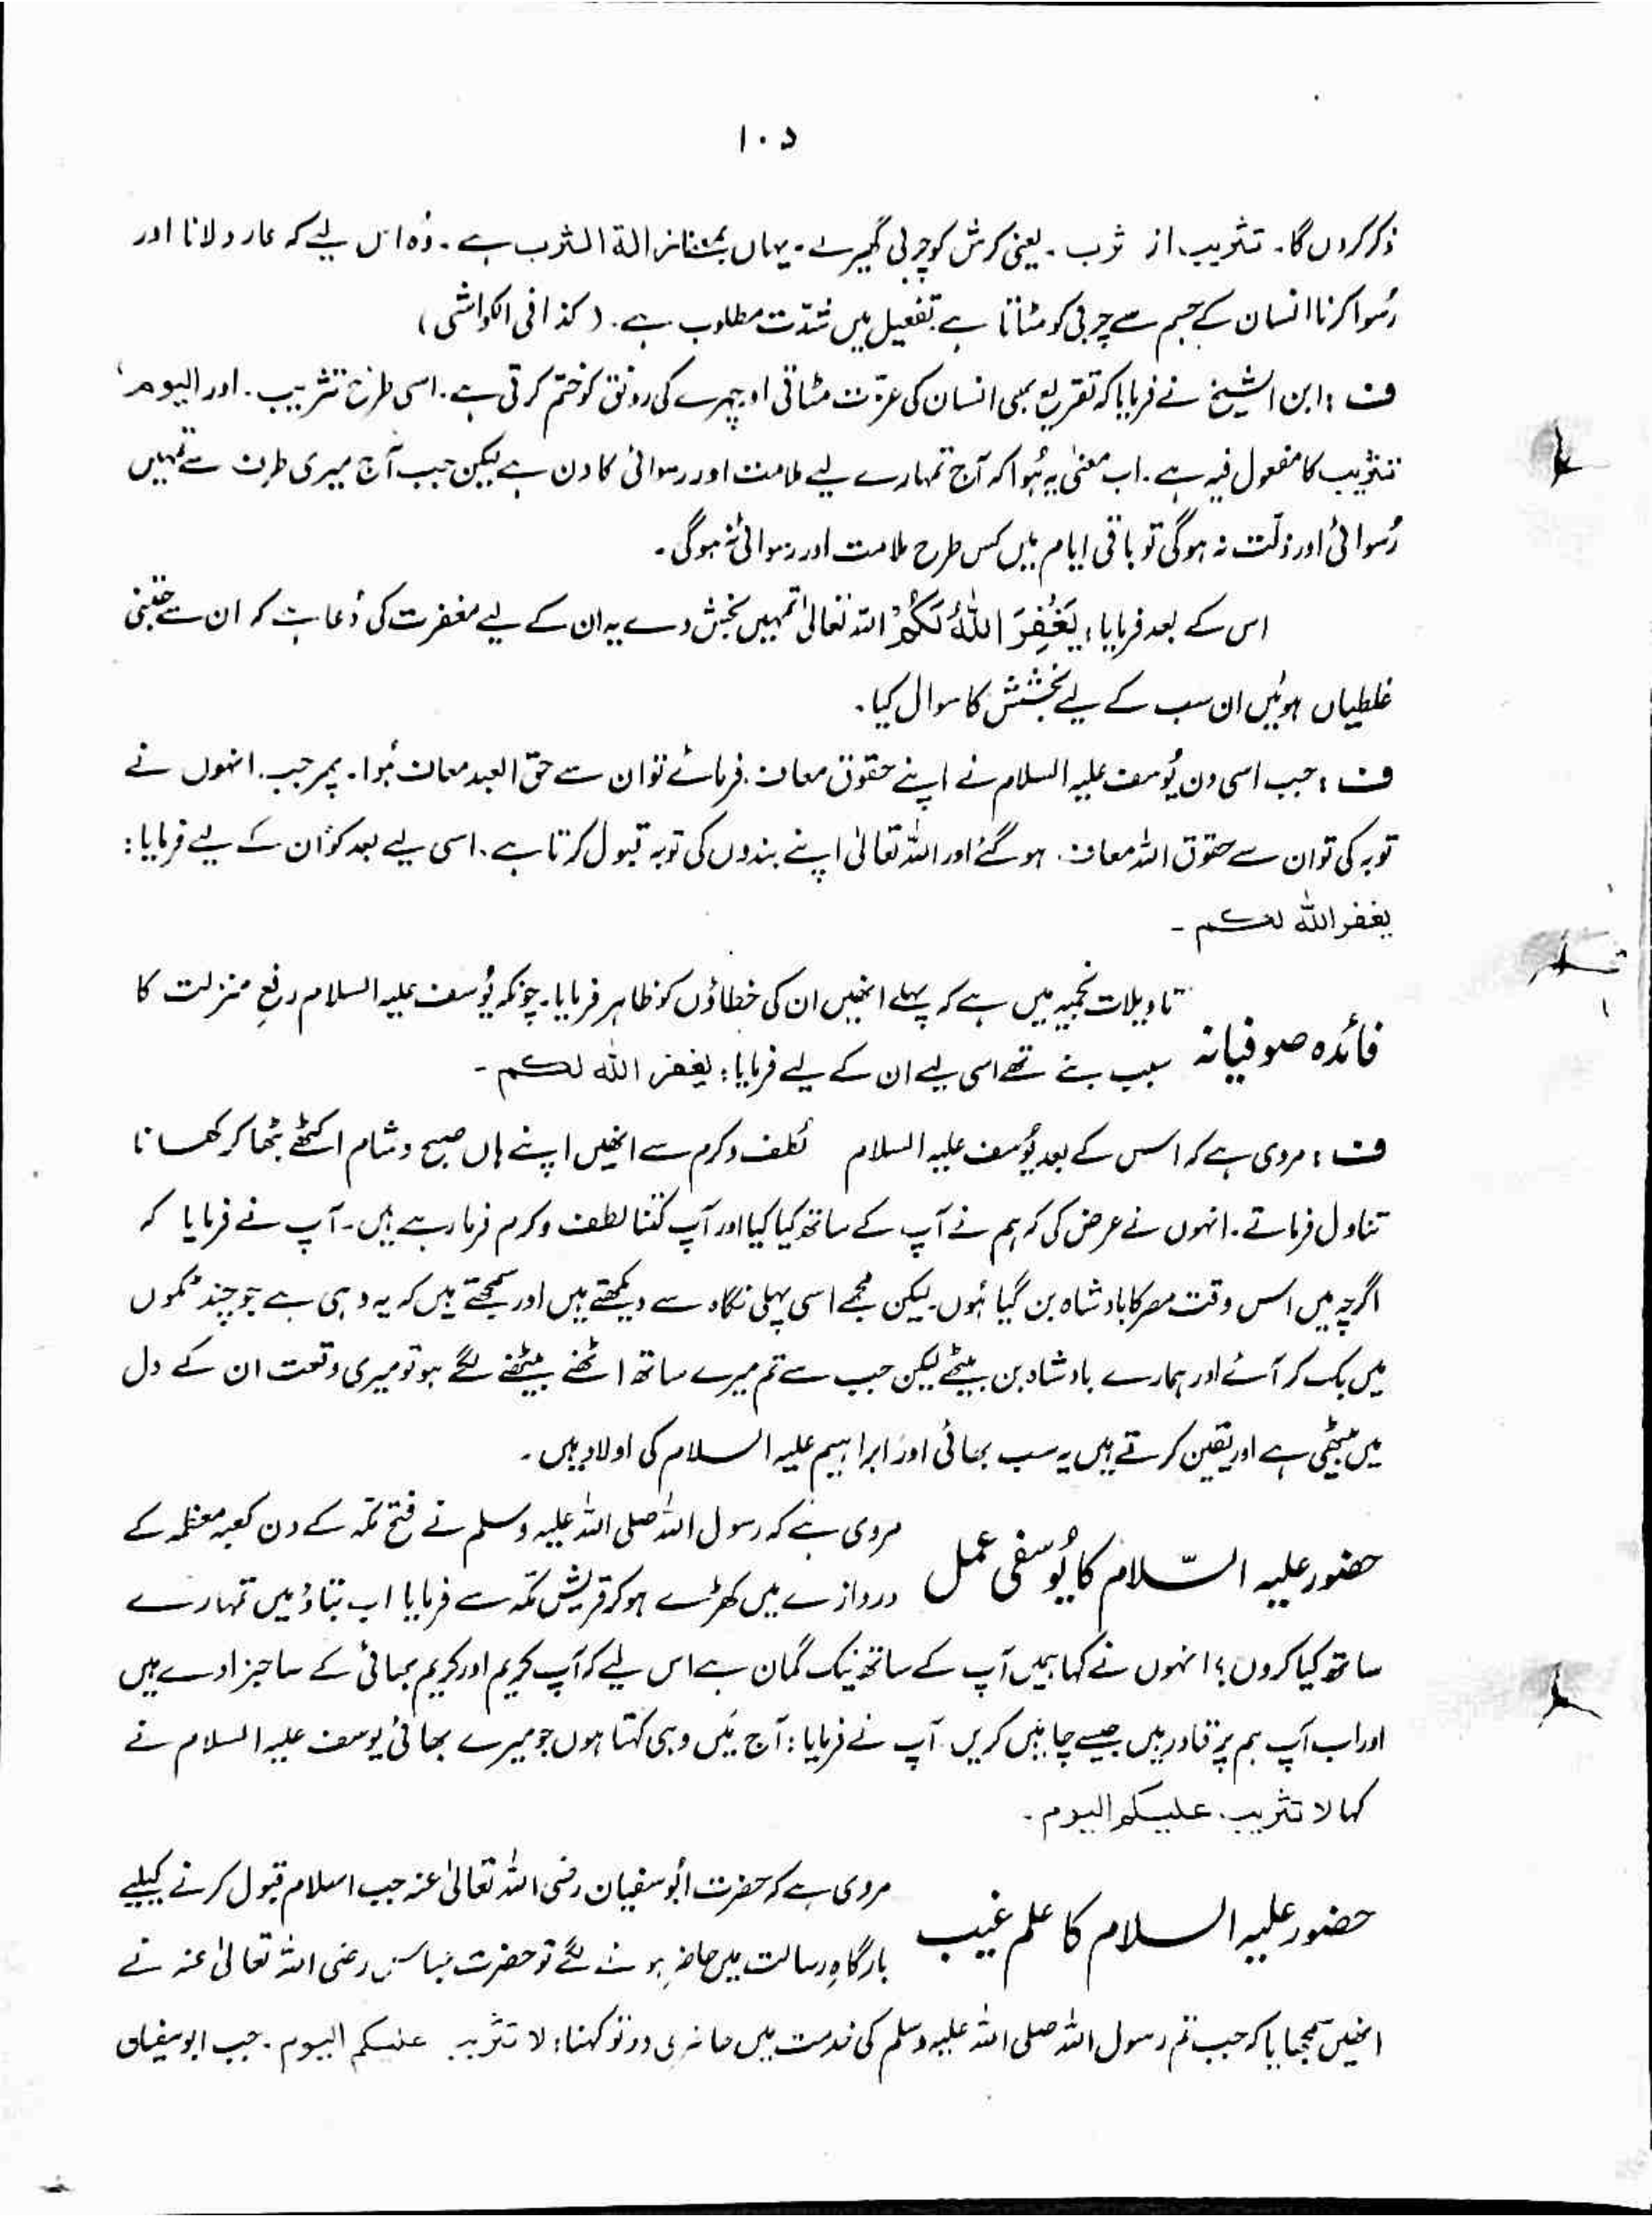 ۱۰۵
ذکر کروں گا۔ تثریب از ثرب۔ یعنی کرش کو چربی گھیرے۔ یہاں بمعنے ازالۃ الثرب ہے۔ وُہ اس لیے کہ عار دلانا اور
رُسوا کرنا انسان کے جسم سے چربی کو مٹاتا ہے تفعیل میں شدّت مطلوب ہے۔ (کذا فی الکواشی)
ف : ابن الشیخ نے فرمایا کہ تقریع بھی انسان کی عزّت مٹاتی او چہرے کی رونق کو ختم کرتی ہے۔ اسی طرح تثریب۔ اور الیوم،
تثریب کا مفعول فیہ ہے۔ اب معنیٰ یہ ہُوا کہ آج تمہارے لیے ملامت اور رسوائی کا دن ہے لیکن جب آج میری طرف سے تمہیں
رُسوائی اور ذلّت نہ ہوگی تو باقی ایام میں کس طرح ملامت اور رسوائی نہ ہوگی۔
اس کے بعد فرمایا : یَغْفِرَ اللّٰهُ لَکُمْ اللہ تعالیٰ تمہیں بخش دے یہ ان کے لیے مغفرت کی دُعا ہے کہ ان سے جتنی
غلطیاں ہوئیں ان سب کے لیے بخشش کا سوال کیا۔
ف : جب اسی دن یُوسف علیہ السلام نے اپنے حقوق معاف فرمائے تو ان سے حق العبد معاف ہُوا۔ پھر جب انہوں نے
توبہ کی تو ان سے حقوق اللہ معاف ہو گئے اور اللہ تعالیٰ اپنے بندوں کی توبہ قبول کرتا ہے۔ اسی لیے بعد کو ان کے لیے فرمایا :
یغفر اللہ لکم۔
تاویلات نجمیہ میں ہے کہ پہلے انھیں ان کی خطاؤں کو ظاہر فرمایا۔ چونکہ یُوسف علیہ السلام رفعِ منزلت کا
فائدہ صوفیانہ سبب بنے تھے اسی لیے ان کے لیے فرمایا : یغفر اللہ لکم۔
ف : مروی ہے کہ اس کے بعد یُوسف علیہ السلام لطف وکرم سے انھیں اپنے ہاں صبح وشام اکٹھے بٹھا کر کھانا
تناول فرماتے۔ انہوں نے عرض کی کہ ہم نے آپ کے ساتھ کیا کیا اور آپ کتنا لطف وکرم فرما رہے ہیں۔ آپ نے فرمایا کہ
اگرچہ میں اس وقت مصر کا بادشاہ بن گیا ہُوں۔ لیکن مجھے اسی پہلی نگاہ سے دیکھتے ہیں اور سمجھتے ہیں کہ یہ وہی ہے جو چند ٹکوں
میں بک کر آئے اور ہمارے بادشاہ بن بیٹھے لیکن جب سے تم میرے ساتھ اٹھنے بیٹھنے لگے ہو تو میری وقعت ان کے دل
میں بیٹھی ہے اور یقین کرتے ہیں یہ سب بھائی اور ابراہیم علیہ السلام کی اولاد ہیں۔
مروی ہے کہ رسول اللہ صلی اللہ علیہ وسلم نے فتح مکّہ کے دن کعبہ معظمہ کے
حضور علیہ السّلام کا یُوسفی عمل دروازے میں کھڑے ہو کر قریش مکّہ سے فرمایا اب بتاؤ میں تمہارے
ساتھ کیا کروں؟ انہوں نے کہا ہمیں آپ کے ساتھ نیک گمان ہے اس لیے کہ آپ کریم اور کریم بھائی کے صاحبزادے ہیں
اور اب آپ ہم پر قادر ہیں جیسے چاہیں کریں۔ آپ نے فرمایا : آج مَیں وہی کہتا ہوں جو میرے بھائی یوسف علیہ السلام نے
کہا لا تثریب علیکم الیوم۔
مروی ہے کہ حضرت ابُوسفیان رضی اللہ تعالیٰ عنہ جب اسلام قبول کرنے کیلیے
حضور علیہ السلام کا علم غیب بارگاہِ رسالت میں حاضر ہونے لگے تو حضرت عباس رضی اللہ تعالیٰ عنہ نے
انھیں سمجھایا کہ جب تم رسول اللہ صلی اللہ علیہ وسلم کی خدمت میں حاضری دو تو کہنا : لا تثریب علیکم الیوم۔ جب ابوسفیان